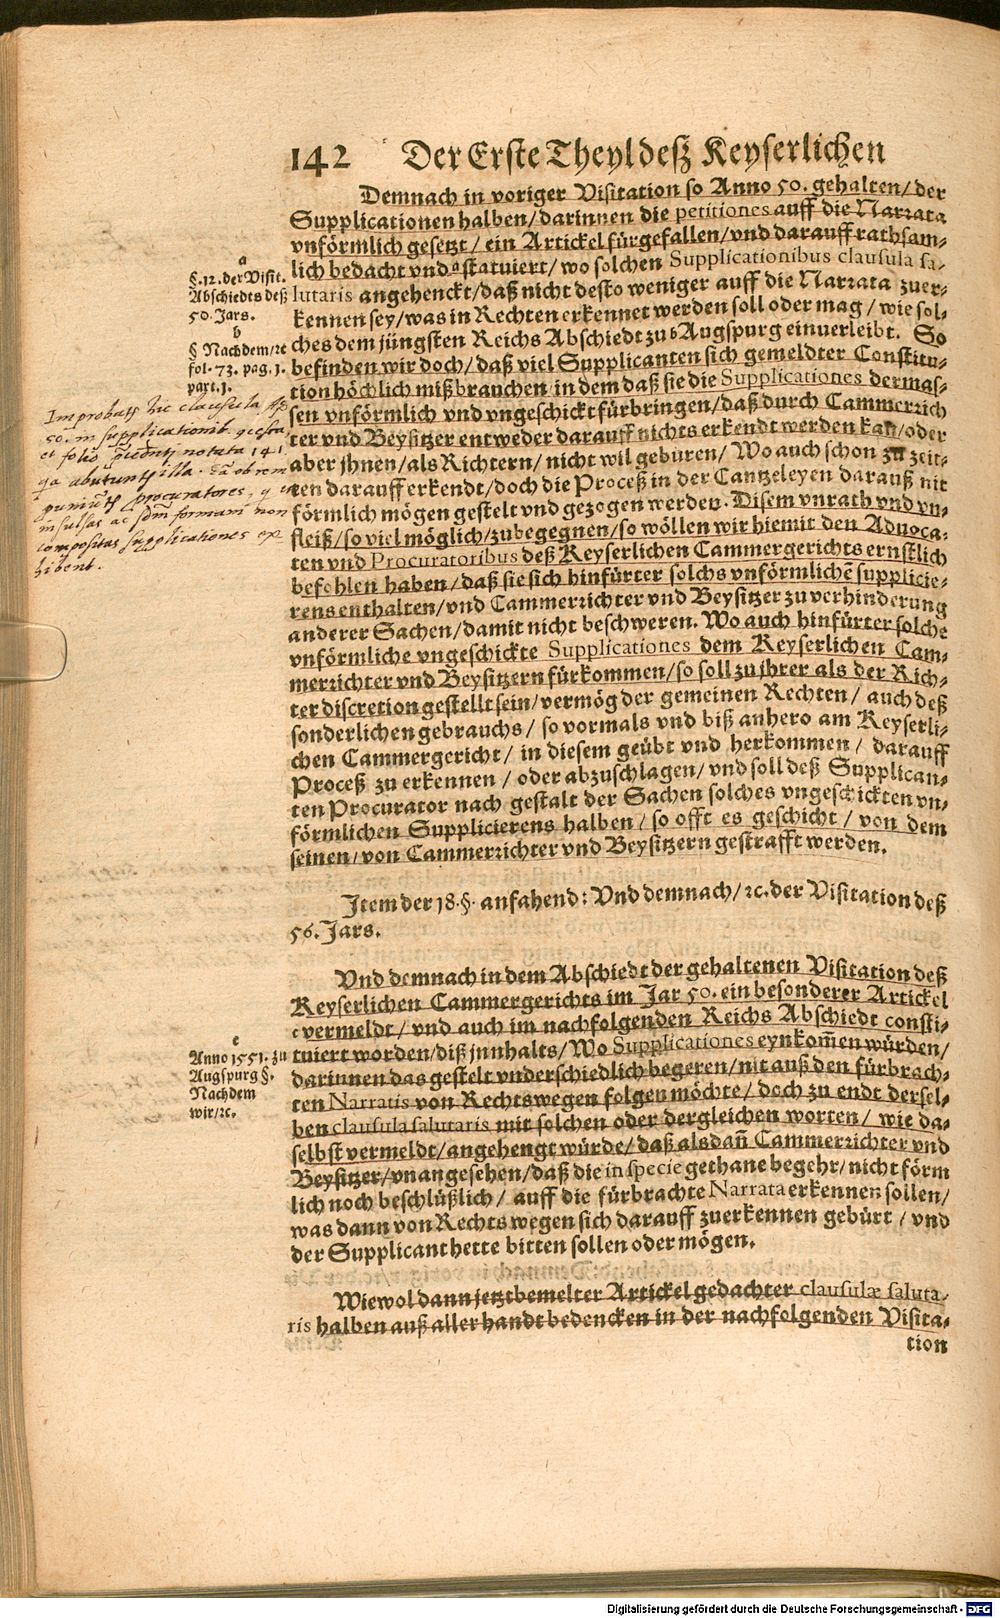 142 Der Erste Theyl deß Keyserlichen
Demnach in voriger Visitation so Anno 50. gehalten/ der
Supplicationen halben/ darinnen die petitiones auff die Narrata
vnförmlich gesetzt/ ein Artickel fürgefallen/ vnd darauff rathsam-
lich bedacht vnd a statuiert/ wo solchen Supplicationibus clausula sa-
lutaris angehenckt/ daß nicht desto weniger auff die Narrata zuer-
kennen sey/ was in Rechten erkennet werden soll oder mag/ wie sol-
ches dem jüngsten Reichs Abschiedt zu b Augspurg einuerleibt. So
befinden wir doch/ daß viel Supplicanten sich gemeldter Constitu-
tion höchlich mißbrauchen/ in dem daß sie die Supplicationes dermas-
sen vnförmlich vnd vngeschickt fürbringen/ daß durch Cammerrich
ter vnd Beysitzer entweder darauff nichts erkendt werden kan/ oder
aber jhnen/ als Richtern/ nicht wil gebüren/ Wo auch schon zu zeit-
ten darauff erkendt/ doch die Proceß in der Cantzeleyen darauß nit
förmlich mögen gestelt vnd gezogen werden. Disem vnrath vnd vn-
fleiß/ so viel möglich/ zubegegnen/ so wöllen wir hiemit den Aduoca-
ten vnd Procuratoribus deß Keyserlichen Cammergerichts ernstlich
befohlen haben/ daß sie sich hinfürter solchs vnförmlichē supplicie-
rens enthalten/ vnd Cammerrichter vnd Beysitzer zu verhinderung
anderer Sachen/ damit nicht beschweren. Wo auch hinfürter solche
vnförmliche vngeschickte Supplicationes dem Keyserlichen Cam-
merrichter vnd Beysitzern fürkommen/ so soll zu jhrer als der Rich-
ter discretion gestellt sein/ vermög der gemeinen Rechten/ auch deß
sonderlichen gebrauchs/ so vormals vnd biß anhero am Keyserli-
chen Cammergericht/ in diesem geübt vnd herkommen/ darauff
Proceß zu erkennen/ oder abzuschlagen/ vnd soll deß Supplican-
ten Procurator nach gestalt der Sachen solches vngeschickten vn-
förmlichen Supplicierens halben/ so offt es geschicht/ von dem
seinen/ von Cammerrichter vnd Beysitzern gestrafft werden.
a
§. 12. der Visit.
Abschiedts deß
50. Jars.
b
§ Nachdem/ ꝛc
fol. 73. pag. 1.
part. 1.
Improbatz hic clausula
50. in supplicationib.
et folio notata 141
qa abutuntz illa.
procuratores, q
insulsas ac formam non
compositas supplicationes ex
hibent.
Item der 18. §. anfahend: Vnd demnach/ ꝛc. der Visitation deß
56. Jars.
Vnd demnach in dem Abschiedt der gehaltenen Visitation deß
Keyserlichen Cammergerichts im Jar 50. ein besonderer Artickel
c vermeldt/ vnd auch im nachfolgenden Reichs Abschiedt consti-
tuiert worden/ diß jnnhalts/ Wo Supplicationes eynkom̄en würden/
darinnen das gestelt vnderschiedlich begeren/ nit auß den fürbrach-
ten Narratis von Rechtswegen folgen möchte/ doch zu endt dersel-
ben clausula salutaris mit solchen oder dergleichen worten/ wie da-
selbst vermeldt/ angehengt würde/ daß alsdañ Cammerrichter vnd
Beysitzer/ vnangesehen/ daß die in specie gethane begehr/ nicht förm
lich noch beschlüßlich/ auff die fürbrachte Narrata erkennen sollen/
was dann von Rechts wegen sich darauff zuerkennen gebürt/ vnd
der Supplicant hette bitten sollen oder mögen.
c
Anno 1551. zu
Augspurg §.
Nachdem
wir/ ꝛc.
Wiewol dann jetztbemelter Artickel gedachter clausulæ saluta-
ris halben auß allerhandt bedencken in der nachfolgenden Visita-
tion
Digitalisierung gefördert durch die Deutsche Forschungsgemeinschaft - DFG